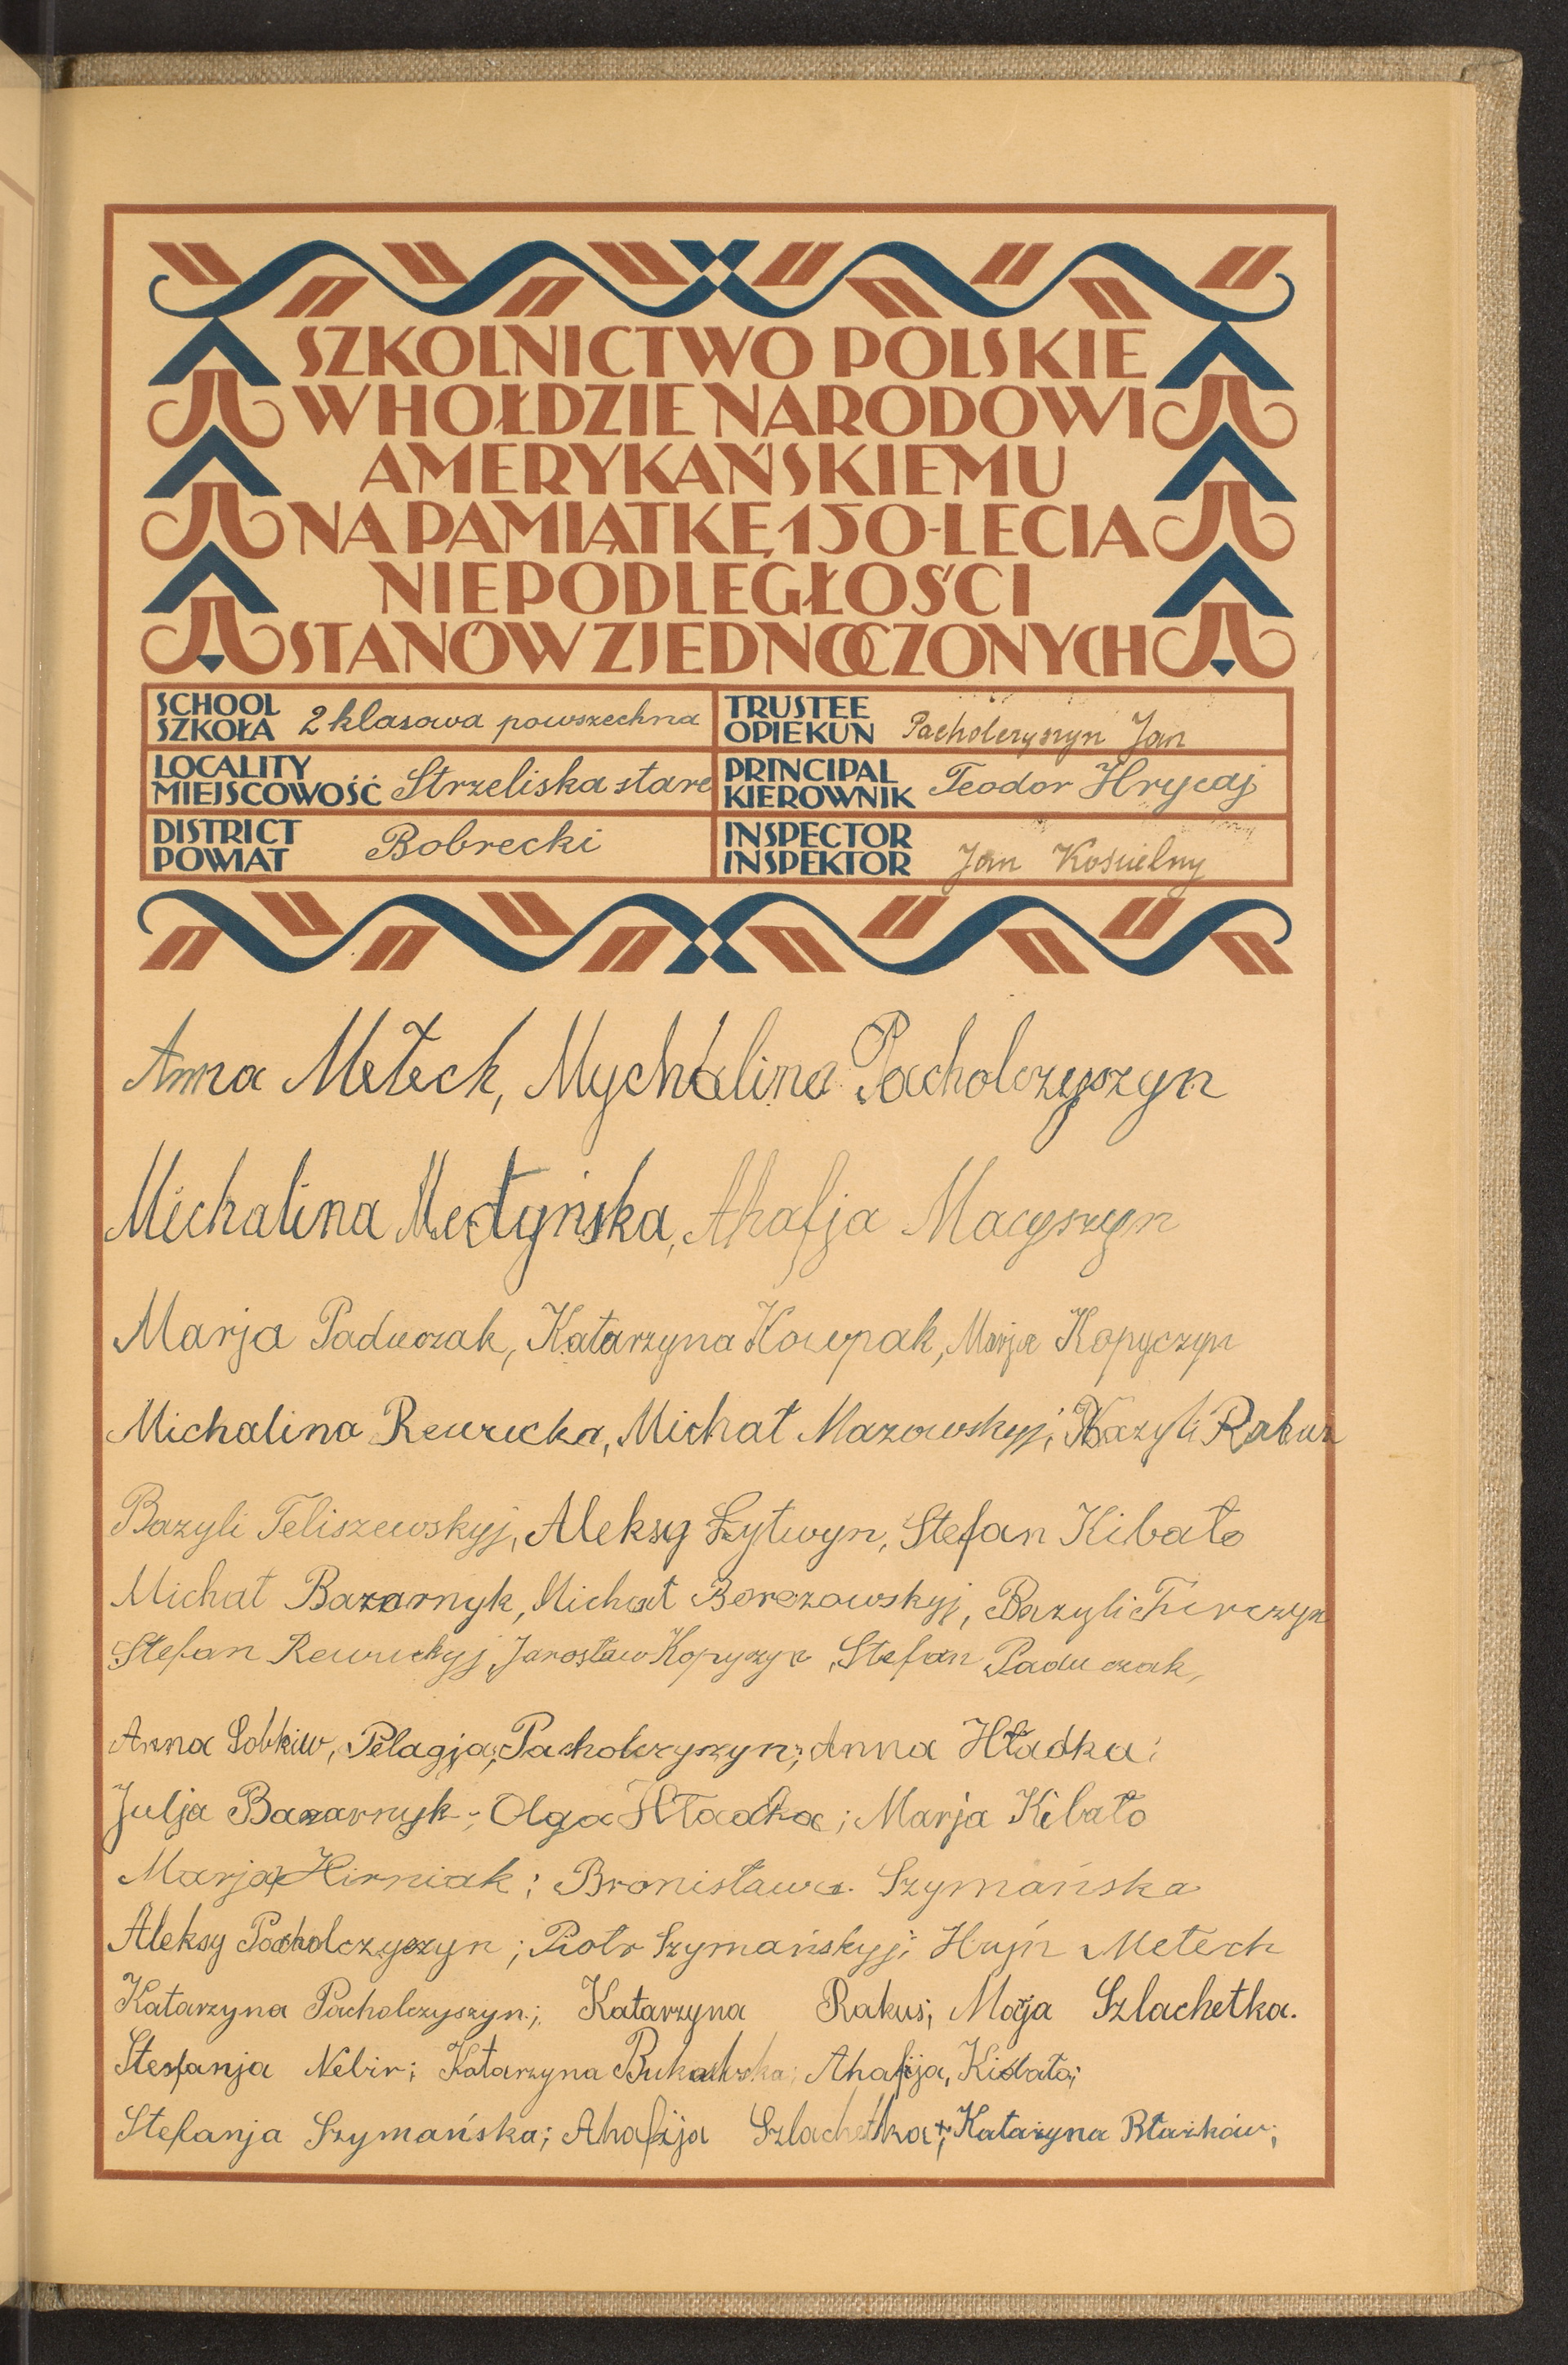 SZKOLNICTWO POLSKIE
W HOŁDZIE NARODOWI
AMERYKAŃSKIEMU
NA PAMIĄTKĘ 150-LECIA
NIEPODLEGŁOŚCI
STANÓW ZJEDNOCZONYCH
SCHOOL
SZKOŁA 2 klasowa powszechna
TRUSTEE
OPIEKUN Pacholczyszyn Jan
LOCALITY
MIEJSCOWOŚĆ Strzeliska stare
PRINCIPAL
KIEROWNIK Teodor Hrycaj
DISTRICT
POWIAT Bobrecki
INSPECTOR
INSPEKTOR Jan Kościelny
Anna Metech, Mychalina Pacholczyszyn
Michalina Medyńska, Ahafja Macyszyn
Marja Paduczak, Katarzyna Kowpak, Marja Kopyczyn
Michalina Rewucka, Michał Mazowskyj, Bazyli
Bazyli Teliszewskyj, Aleksy Łytwyn, Stefan Kibało
Michał Bazarnyk, Michał Berezowskyj, Bazyli
Stefan Rewuckyj, Jarosław Kopyczyn, Stefan Paduczak,
Anna Sobkiw, Pelagja, Pacholczyszyn; Anna Hładka;
Julja Bazarnyk; Olga Hładka; Marja Kibało
Marja Hirniak; Bronisława Szymańska
Aleksy Pacholczyszyn; Piotr Szymańskyj; Hryń Metech
Katarzyna Pacholczyszyn; Katarzyna Rakus; Marja Szlachetka.
Stefanja Nebir; Katarzyna Ahafija, Kibało;
Stefanja Szymańska; Ahafija Szlachetka; Katarzyna Błażków;